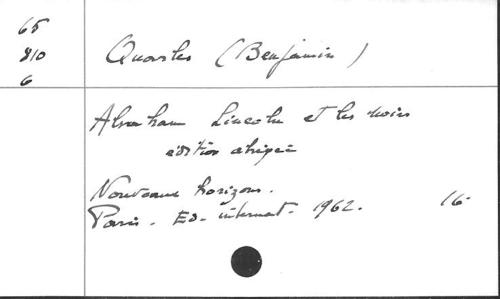 65
810
6
Quarles (Benjamin)
Abraham Lincoln et les noirs
édition abrégée
Nouveaux horizons.
Paris. Ed. internat. 1962. 16-